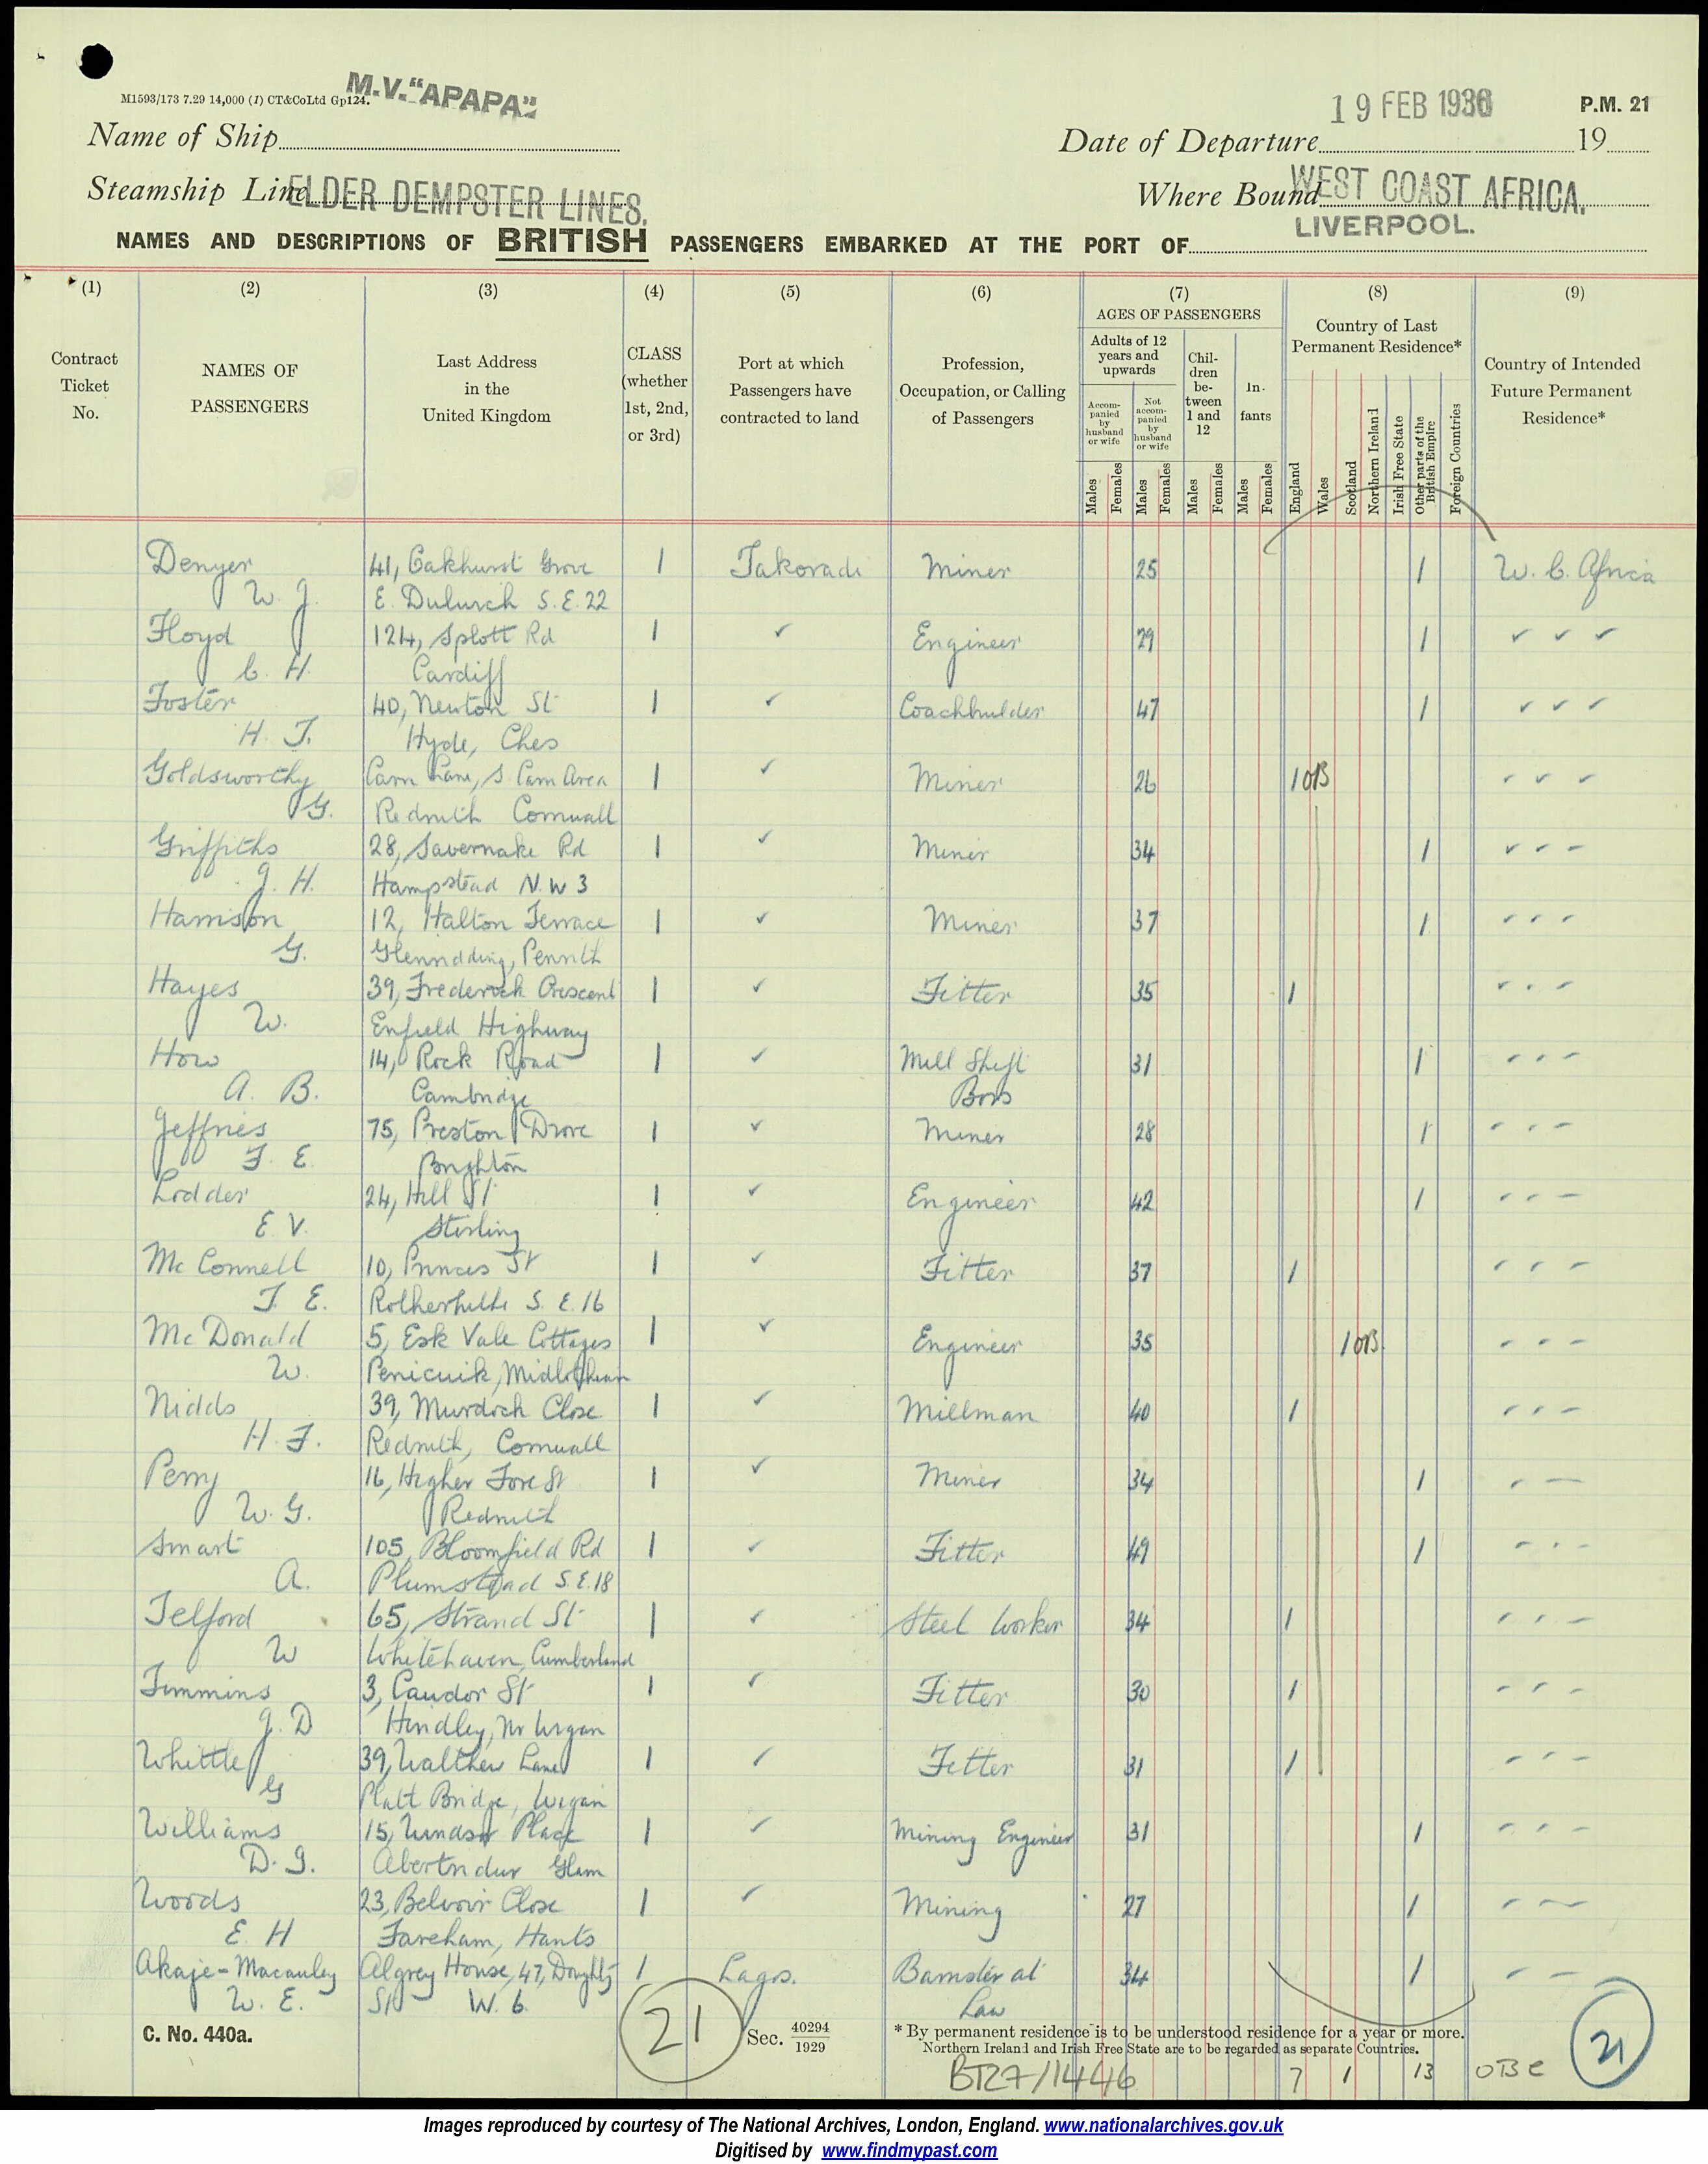 M1593/173 7.29 14,000 (1) CT&CoLtd Gp124.
M.V. "APAPA"
19 FEB 1936
P.M. 21
Name of Ship
Date of Departure 19
Steamship Line ELDER DEMPSTER LINES.
Where Bound WEST COAST AFRICA.
LIVERPOOL.
NAMES AND DESCRIPTIONS OF BRITISH PASSENGERS EMBARKED AT THE PORT OF
(1) (2) (3) (4) (5) (6) (7) (8) (9)
Contract Ticket No.
NAMES OF PASSENGERS
Last Address in the United Kingdom
CLASS (whether 1st, 2nd, or 3rd)
Port at which Passengers have contracted to land
Profession, Occupation, or Calling of Passengers
AGES OF PASSENGERS
Adults of 12 years and upwards
Accompanied by husband or wife
Not accompanied by husband or wife
Children between 1 and 12
Infants
Males Females Males Females Males Females Males Females
Country of Last Permanent Residence*
England Wales Scotland Northern Ireland Irish Free State Other parts of the British Empire Foreign Countries
Country of Intended Future Permanent Residence*
Denyer 41, Oakhurst Grove 1 Takoradi Miner 25 1 W. C. Africa
W. J. E. Dulwich S.E.22
Floyd 124, Splott Rd 1 ✓ Engineer 29 1 ✓ ✓ ✓
C. H. Cardiff
Foster 40, Newton St 1 ✓ Coachbuilder 47 1 ✓ ✓ ✓
H. J. Hyde, Ches
Goldsworthy Carn Lane, S. Carn Area 1 ✓ Miner 26 1 OB ✓ ✓ ✓
G. Redruth Cornwall
Griffiths 28, Savernake Rd 1 ✓ Miner 34 1
J. H. Hampstead N.W 3
Harrison 12, Halton Terrace 1 ✓ Miner 37 1
G. Glenridding, Penrith
Hayes 39, Frederick Crescent 1 ✓ Fitter 35 1
W. Enfield Highway
How 14, Rock Road 1 ✓ Mill Shift 31 1
A. B. Cambridge Boss
Jeffries 75, Preston Drove 1 ✓ Miner 28 1
F. E. Brighton
Lodder 24, Hill St 1 ✓ Engineer 42 1
E. V. Stirling
Mc Connell 10, Princes St 1 ✓ Fitter 37 1
J. E. Rotherhithe S.E.16
Mc Donald 5, Esk Vale Cottages 1 ✓ Engineer 35 1 OB
W. Penicuik, Midlothian
Nidds 39, Murdoch Close 1 ✓ Millman 40 1
H. J. Redruth, Cornwall
Perry 16, Higher Fore St 1 ✓ Miner 34 1
W. G. Redruth
Smart 105, Bloomfield Rd 1 ✓ Fitter 49 1
A. Plumstead S.E.18
Telford 65, Strand St 1 ✓ Steel Worker 34 1
W Whitehaven, Cumberland
Timmins 3, Cawdor St 1 ✓ Fitter 30 1
J. D Hindley, Nr Wigan
Whittle 39, Walthew Lane 1 ✓ Fitter 31 1
G Platt Bridge, Wigan
Williams 15, Windsor Place 1 ✓ Mining Engineer 31 1
D. J. Abertridwr Glam
Woods 23, Belvoir Close 1 ✓ Mining 27 1
E. H Fareham, Hants
Akaje-Macauley Algrey House, 47, Doughty 1 Lagos. Barrister at 34 1
W. E. St W. 6 Law
C. No. 440a.
21
Sec. 40294/1929
* By permanent residence is to be understood residence for a year or more.
Northern Ireland and Irish Free State are to be regarded as separate Countries.
BT27/1446 7 1 13 OBE 21
Images reproduced by courtesy of The National Archives, London, England. www.nationalarchives.gov.uk
Digitised by www.findmypast.com